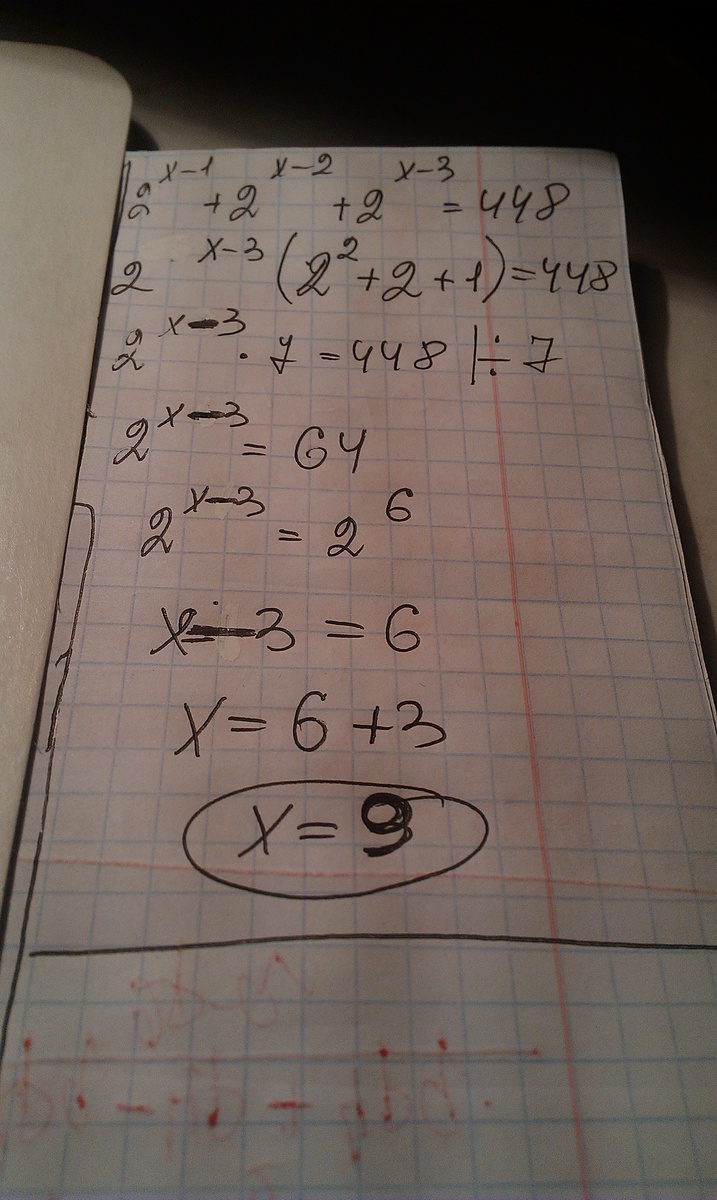 2^{x-1} + 2^{x-2} + 2^{x-3} = 448
2^{x-3} (2^2 + 2 + 1) = 448
2^{x-3} · 7 = 448 | ÷ 7
2^{x-3} = 64
2^{x-3} = 2^6
x - 3 = 6
x = 6 + 3
x = 9